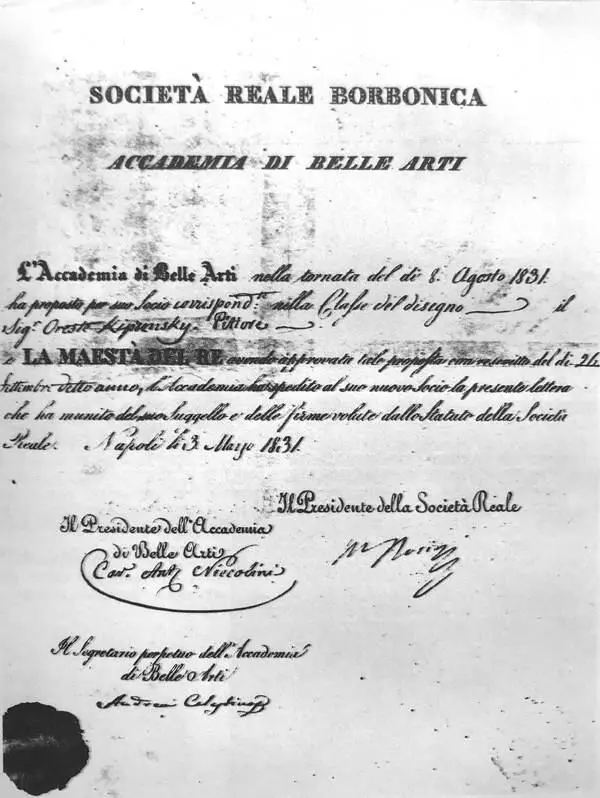 SOCIETÀ REALE BORBONICA
ACCADEMIA DI BELLE ARTI
L'Accademia di Belle Arti nella tornata del dì 8. Agosto 1831.
ha proposto per suo Socio corrispond.e nella Classe del disegno il
Sig.r Oreste Kiprensky. Pittore
e LA MAESTÀ DEL RE avendo approvata tale proposta con rescritto del dì 26
settembre detto anno, l'Accademia ha spedito al suo nuovo Socio la presente lettera
che ha munito del suo Suggello e delle firme volute dallo Statuto della Società
Reale. Napoli li 3. Marzo 1831.
Il Presidente della Società Reale
Il Presidente dell'Accademia
di Belle Arti
Cav. Ant. Niccolini
Il Segretario perpetuo dell'Accademia
di Belle Arti